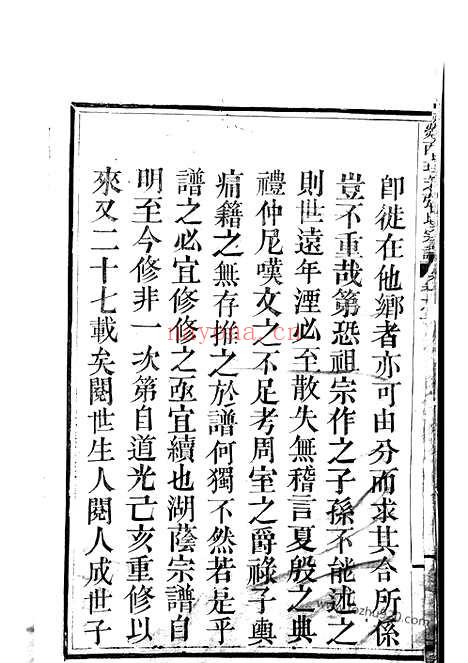 卽徙在他鄉者亦可由分而求其合所係
豈不重哉第恐祖宗作之子孫不能述之
則世遠年湮必至散失無稽言夏殷之典
禮仲尼嘆文之不足考周室之爵祿子輿
痛籍之無存族之於譜何獨不然若是乎
譜之必宜修修之亟宜續也湖蔭宗譜自
明至今修非一次第自道光亡亥重修以
來又二十七載矣閱世生人閱人成世子
nayona.cn